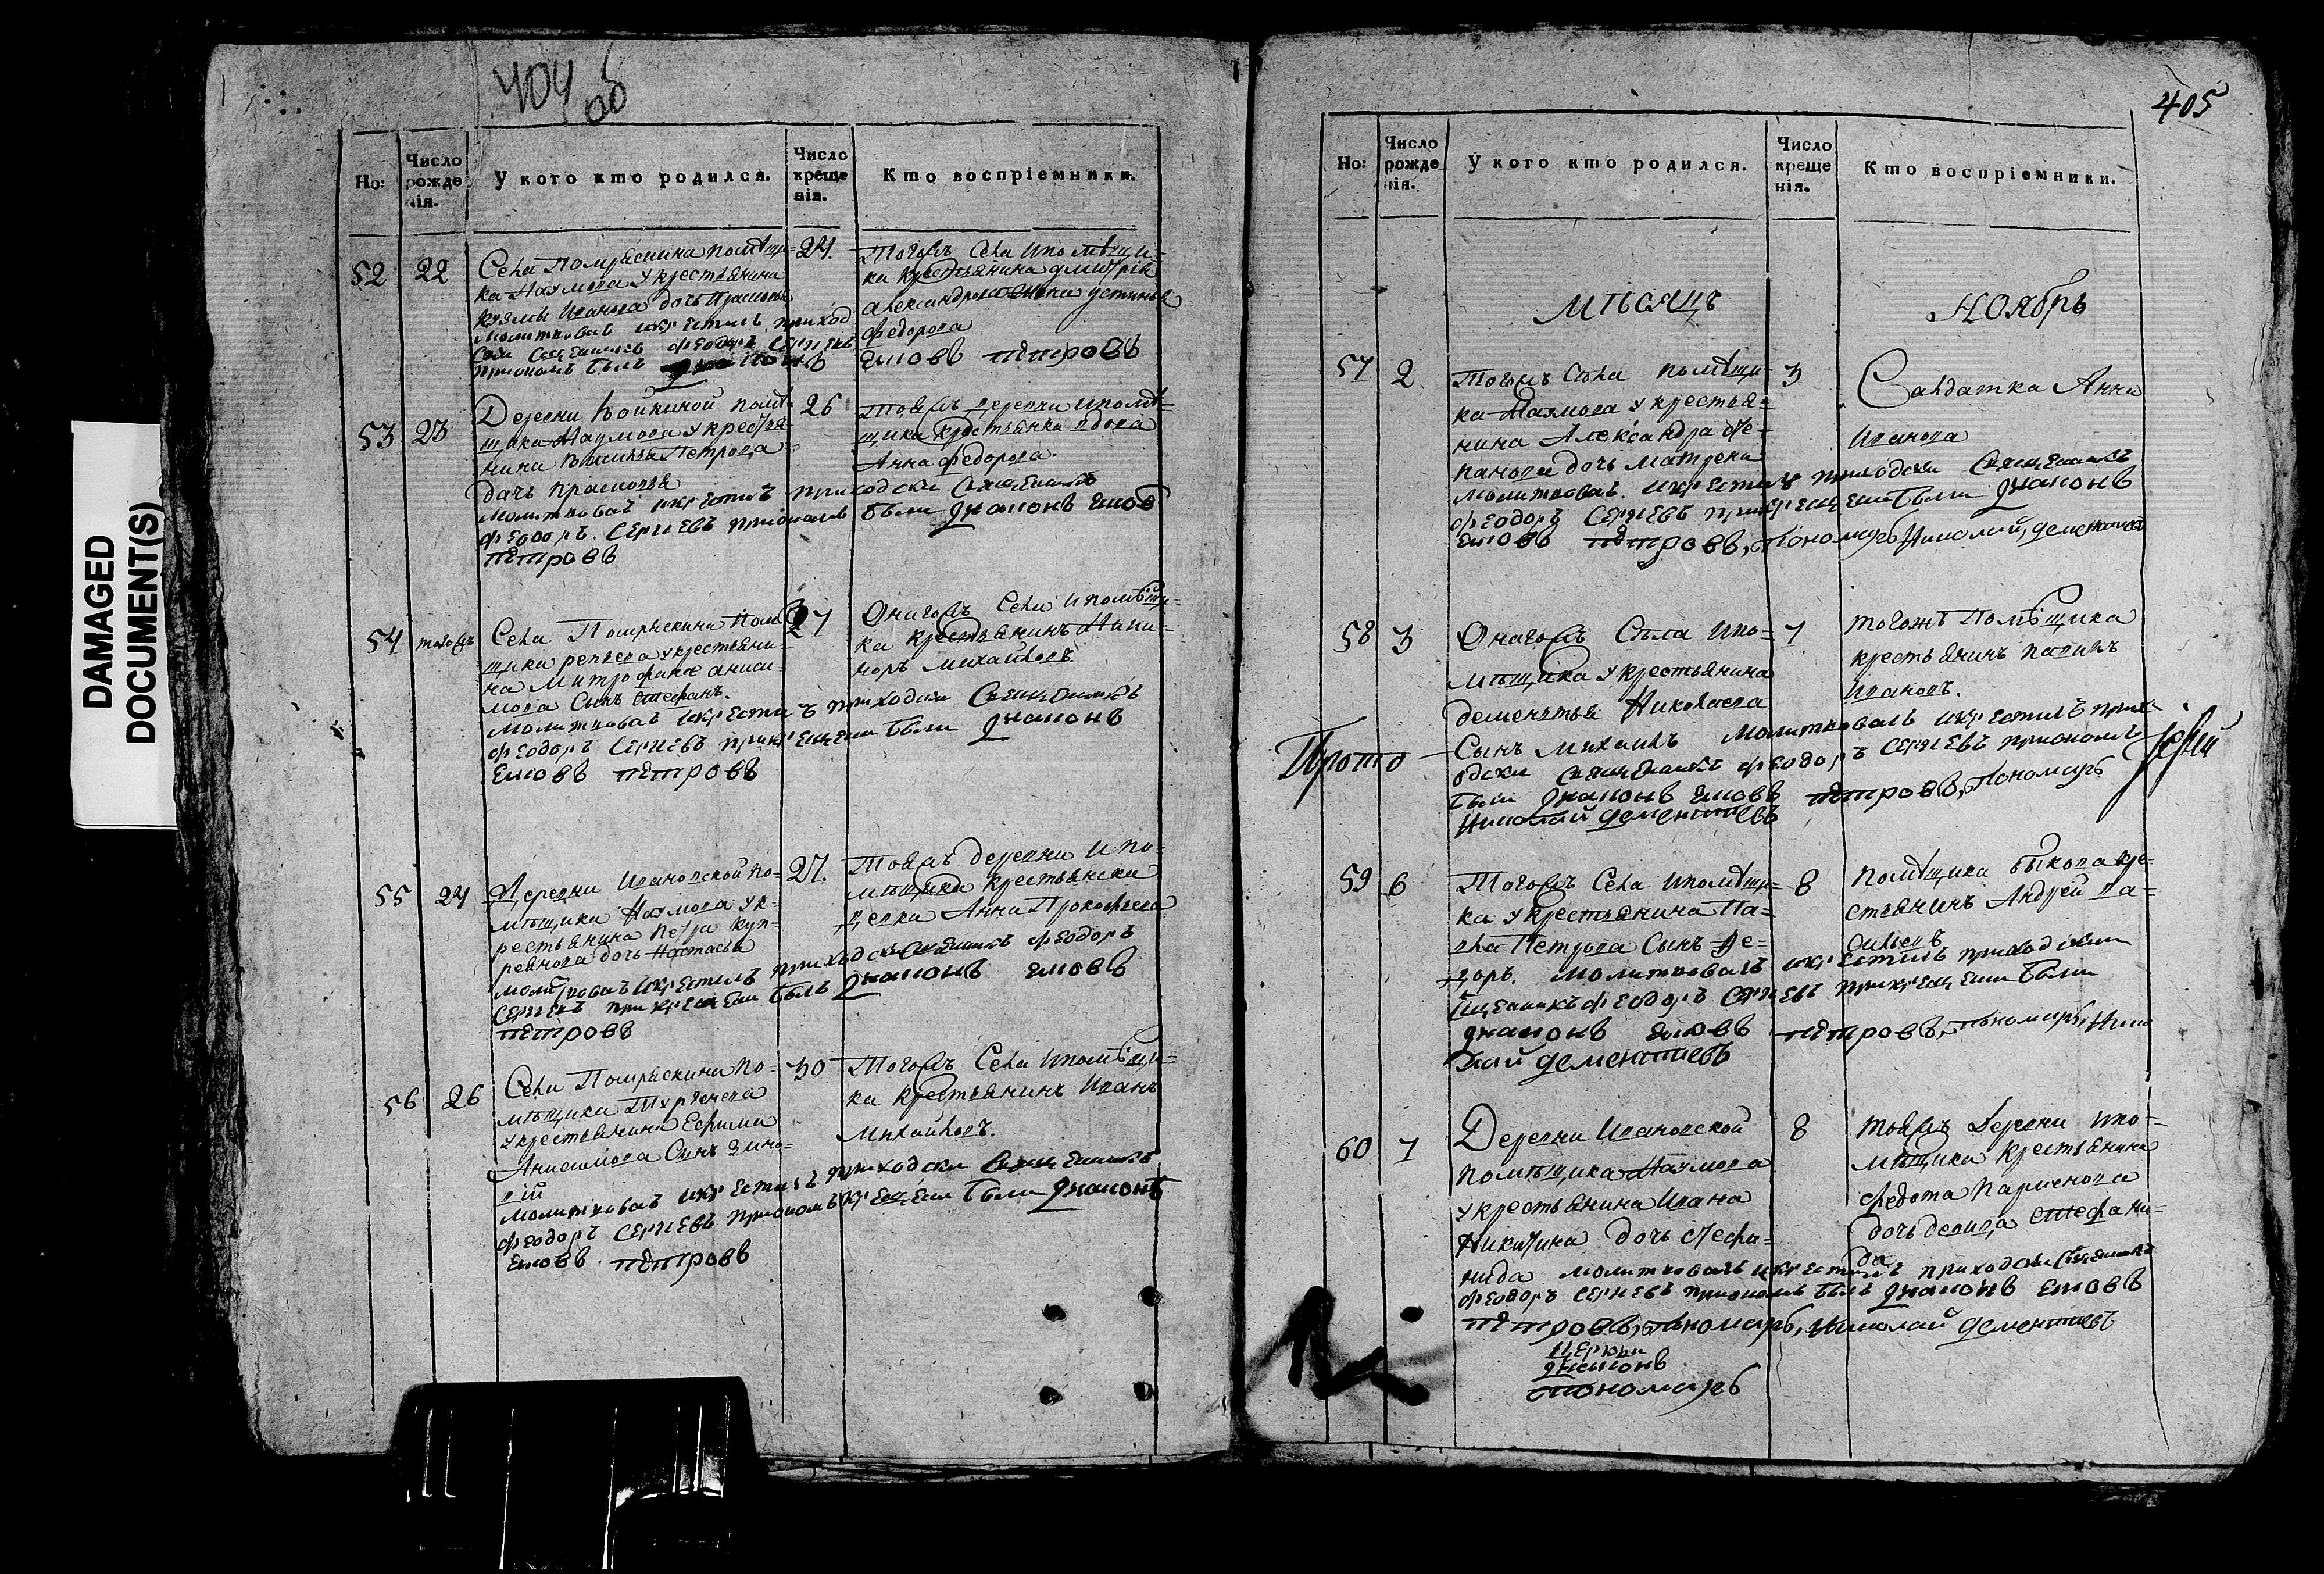 404 об
DAMAGED
DOCUMENT(S)
Но:
Число рожденія.
У кого кто родился.
Число крещенія.
Кто воспріемники.
52
22
Села помѣщи=
ка Наумова у крестьянина
Козмы Иванова дочь
молитвовалъ и крестилъ приход
Священникъ Феодоръ Сергѣевъ
24.
Тогожъ Села и помѣщи=
ка крестьянина Дмитрія
Александрова
Федорова
Емовъ Петровъ
53
23
Деревни Войкиной помѣ
щика Наумова у крестья
нина Василья Петрова
дочь
молитвовалъ и крестилъ приходски Священникъ
Феодоръ Сергѣевъ были
Петровъ
26
Тояжъ деревни и помѣ=
щика крестьянка вдова
Анна Федорова.
54
тогожъ
Села помѣ
щика у крестьяни=
на Митрофана Аниси=
мова Сынъ Стефанъ.
молитвовалъ и крестилъ приходски Священникъ
Феодоръ Сергѣевъ при крещеніи были
Емовъ Петровъ
27
Онагожъ Села и помѣщи=
ка крестьянинъ Ники=
форъ Михайловъ.
55
24
Деревни Ивановской по=
мѣщика Наумова у к=
рестьянина Петра Куп=
реянова дочь Настасья
молитвовалъ и крестилъ приходски Священникъ Феодоръ
Сергѣевъ при крещеніи былъ
Петровъ
27.
Тояжъ деревни и по=
мѣщика крестьянска
девка Анна Прокофьева
56
26
Села по=
мѣщика Тургенева
у крестьянина Ефима
Анисимова Сынъ Зино=
вій
молитвовалъ и крестилъ приходски Священникъ
Феодоръ Сергѣевъ
Емовъ Петровъ
30
Тогожъ Села и помѣщи=
ка крестьянинъ Иванъ
Михайловъ.
405
Но:
Число рожденія.
У кого кто родился.
Число крещенія.
Кто воспріемники.
Мѣсяцъ
Ноябрь
57
2
Тогожъ Села помѣщи=
ка Наумова у крестья=
нина Александра Сте=
панова дочь Матрена
молитвовалъ и крестилъ приходски Священникъ
Феодоръ Сергѣевъ при крещеніи были
Емовъ Петровъ, Пономарь Николай Дементьевъ
3
Салдатка Анна
Иванова
58
3
Онагожъ Села и по=
мѣщика у крестьянина
Дементья Николаева
Сынъ Михаилъ молитвовалъ и крестилъ прихо
дски Священникъ Феодоръ Сергѣевъ
были Емовъ Петровъ, Пономарь
Николай Дементьевъ
7
Тогожъ Помѣщика
крестьянинъ Павилъ
Ивановъ.
Прото
іерей
59
6
Тогожъ Села и помѣщи=
ка у крестьянина Па=
вла Петрова Сынъ Фе=
доръ. молитвовалъ и крестилъ приходскии
Священникъ Феодоръ Сергѣевъ при крещеніи были
Емовъ Петровъ, Пономарь Нико
лай Дементьевъ
8
Помѣщика Быкова кре=
стьянинъ Андрей Ва=
сильевъ
60
7
Деревни Ивановской
помѣщика Наумова
у крестьянина Ивана
Никитина дочь Стефа=
нида молитвовалъ и крестилъ приходски Священникъ
Феодоръ Сергѣевъ былъ Емовъ
Петровъ, Пономарь, Николай Дементьевъ
8
Тояжъ Деревни и по=
мѣщика крестьянина
Федота Парменова
дочь девица Стефани=
да
Пономарь